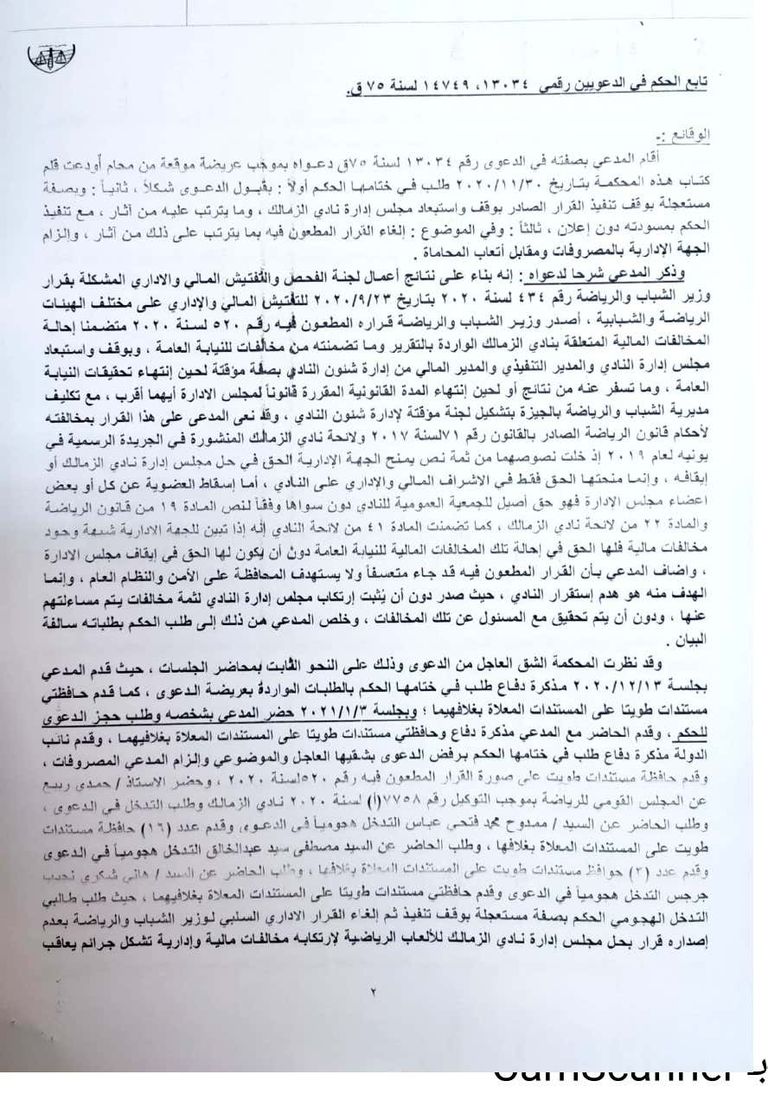 تابع الحكم في الدعويين رقمي ١٣٠٣٤، ١٤٧٤٩ لسنة ٧٥ ق.
الوقائع :-
أقام المدعي بصفته في الدعوى رقم ١٣٠٣٤ لسنة ٧٥ق دعواه بموجب عريضة موقعة من محام أودعت قلم
كتاب هذه المحكمة بتاريخ ٢٠٢٠/١١/٣٠ طلب في ختامها الحكم أولاً : بقبول الدعوى شكلاً ، ثانياً : وبصفة
مستعجلة بوقف تنفيذ القرار الصادر بوقف واستبعاد مجلس إدارة نادي الزمالك ، وما يترتب عليه من آثار ، مع تنفيذ
الحكم بمسودته دون إعلان ، ثالثاً : وفي الموضوع : إلغاء القرار المطعون فيه بما يترتب على ذلك من آثار ، وإلزام
الجهة الإدارية بالمصروفات ومقابل أتعاب المحاماة .
وذكر المدعي شرحا لدعواه : إنه بناء على نتائج أعمال لجنة الفحص والتفتيش المالي والاداري المشكلة بقرار
وزير الشباب والرياضة رقم ٤٣٤ لسنة ٢٠٢٠ بتاريخ ٢٠٢٠/٩/٢٣ للتفتيش المالي والإداري على مختلف الهيئات
الرياضية والشبابية ، أصدر وزير الشباب والرياضة قراره المطعون فيه رقم ٥٢٠ لسنة ٢٠٢٠ متضمنا إحالة
المخالفات المالية المتعلقة بنادي الزمالك الواردة بالتقرير وما تضمنته من مخالفات للنيابة العامة ، وبوقف واستبعاد
مجلس إدارة النادي والمدير التنفيذي والمدير المالي من إدارة شئون النادي بصفة مؤقتة لحين إنتهاء تحقيقات النيابة
العامة ، وما تسفر عنه من نتائج أو لحين إنتهاء المدة القانونية المقررة قانوناً لمجلس الادارة أيهما أقرب ، مع تكليف
مديرية الشباب والرياضة بالجيزة بتشكيل لجنة مؤقتة لإدارة شئون النادي ، وقد نعى المدعى على هذا القرار بمخالفته
لأحكام قانون الرياضة الصادر بالقانون رقم ٧١لسنة ٢٠١٧ ولائحة نادي الزمالك المنشورة في الجريدة الرسمية في
يونيه لعام ٢٠١٩ إذ خلت نصوصهما من ثمة نص يمنح الجهة الإدارية الحق في حل مجلس إدارة نادي الزمالك أو
إيقافه ، وإنما منحتها الحق فقط في الاشراف المالي والإداري على النادي ، أما إسقاط العضوية عن كل أو بعض
اعضاء مجلس الادارة فهو حق أصيل للجمعية العمومية للنادي دون سواها وفقاً لنص المادة ١٩ من قانون الرياضة
والمادة ٢٢ من لائحة نادي الزمالك ، كما تضمنت المادة ٤١ من لائحة النادي إنه إذا تبين للجهة الادارية شبهة وجود
مخالفات مالية فلها الحق في إحالة تلك المخالفات المالية للنيابة العامة دون أن يكون لها الحق في إيقاف مجلس الادارة
، واضاف المدعي بأن القرار المطعون فيه قد جاء متعسفاً ولا يستهدف المحافظة على الأمن والنظام العام ، وإنما
الهدف منه هو هدم إستقرار النادي ، حيث صدر دون أن يُثبت إرتكاب مجلس إدارة النادي لثمة مخالفات يتم مساءلتهم
عنها ، ودون أن يتم تحقيق مع المسئول عن تلك المخالفات ، وخلص المدعي من ذلك إلى طلب الحكم بطلباته سالفة
البيان .
وقد نظرت المحكمة الشق العاجل من الدعوى وذلك على النحو الثابت بمحاضر الجلسات ، حيث قدم المدعي
بجلسة ٢٠٢٠/١٢/١٣ مذكرة دفاع طلب في ختامها الحكم بالطلبات الواردة بعريضة الدعوى ، كما قدم حافظتي
مستندات طويتا على المستندات المعلاة بغلافيهما ؛ وبجلسة ٢٠٢١/١/٣ حضر المدعي بشخصه وطلب حجز الدعوى
للحكم ، وقدم الحاضر مع المدعي مذكرة دفاع وحافظتي مستندات طويتا على المستندات المعلاة بغلافيهما ، وقدم نائب
الدولة مذكرة دفاع طلب في ختامها الحكم برفض الدعوى بشقيها العاجل والموضوعي وإلزام المدعي المصروفات ،
وقدم حافظة مستندات طويت على صورة القرار المطعون فيه رقم ٥٢٠لسنة ٢٠٢٠ ، وحضر الاستاذ / حمدى ربيع
عن المجلس القومي للرياضة بموجب التوكيل رقم ٧٧٥٨(أ) لسنة ٢٠٢٠ نادي الزمالك وطلب التدخل في الدعوى ،
وطلب الحاضر عن السيد / ممدوح محمد فتحي عباس التدخل هجومياً في الدعوى وقدم عدد (١٦) حافظة مستندات
طويت على المستندات المعلاة بغلافها ، وطلب الحاضر عن السيد مصطفى سيد عبدالخالق التدخل هجومياً في الدعوى
وقدم عدد (٢) حوافظ مستندات طويت على المستندات المعلاة بغلافها ، وطلب الحاضر عن السيد / هاني شكري نجيب
جرجس التدخل هجومياً في الدعوى وقدم حافظتي مستندات طويتا على المستندات المعلاة بغلافيهما ، حيث طلب طالبي
التدخل الهجومي الحكم بصفة مستعجلة بوقف تنفيذ ثم إلغاء القرار الاداري السلبي لوزير الشباب والرياضة بعدم
إصداره قرار بحل مجلس إدارة نادي الزمالك للألعاب الرياضية لإرتكابه مخالفات مالية وإدارية تشكل جرائم يعاقب
٢
بـ CamScanner